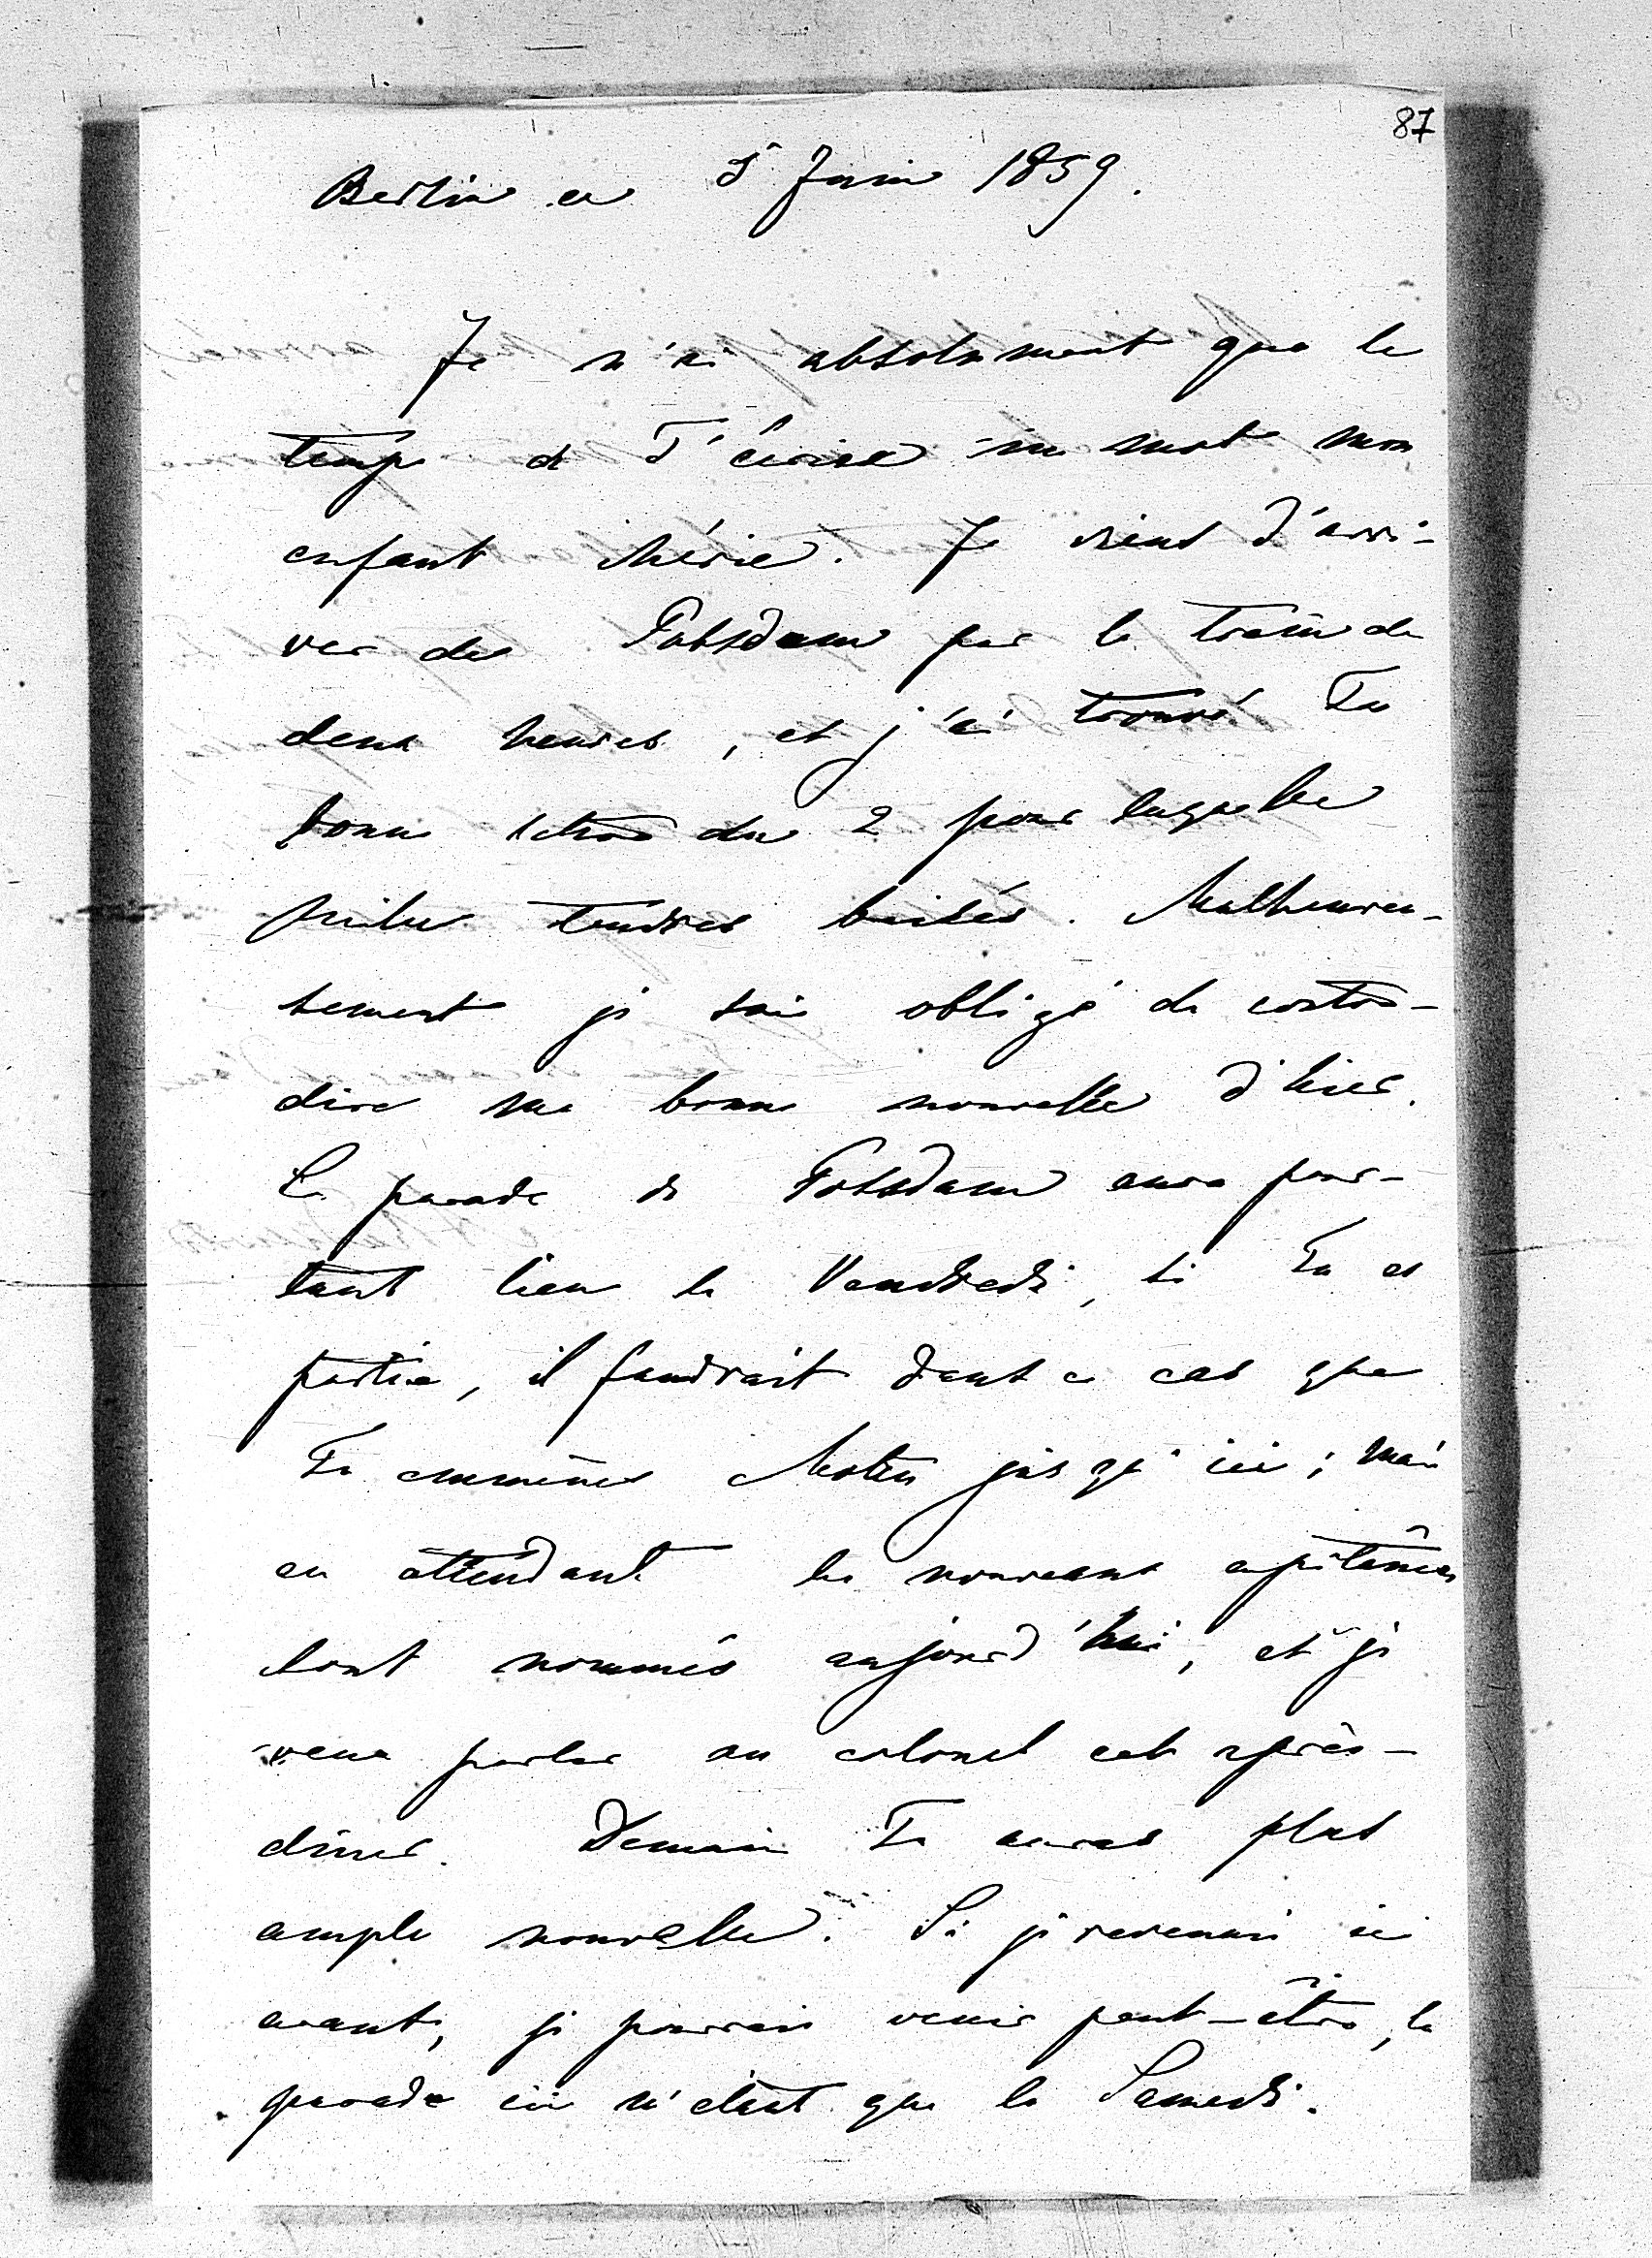 87
Berlin ce 5 Juin 1859.
Je n'ai absolument que le
temps de T'écrire un mot mon
enfant chérie. Je viens d'arri-
ver de Potsdam par le train de
deux heures, et j'ai trouvé Ta
bonne lettre du 2 pour laquelle
mille tendres baisés. Malheureu-
sement je suis obligé de contre-
dire ma bonne nouvelle d'hier.
La parade de Potsdam aura pour-
tant lieu le Vendredi, si Tu es
partie, il faudrait dans ce cas que
Tu emmènes jusqu'ici; mais
en attendant les nouveaux capitaines
sont nommés aujourd'hui, et je
veux parler au colonel cet après-
diner. Demain Tu auras plus
ample nouvelle. Si je revenais ici
avant, je pourrais venir peut-être, la
parade ici n'étant que le Samedi.